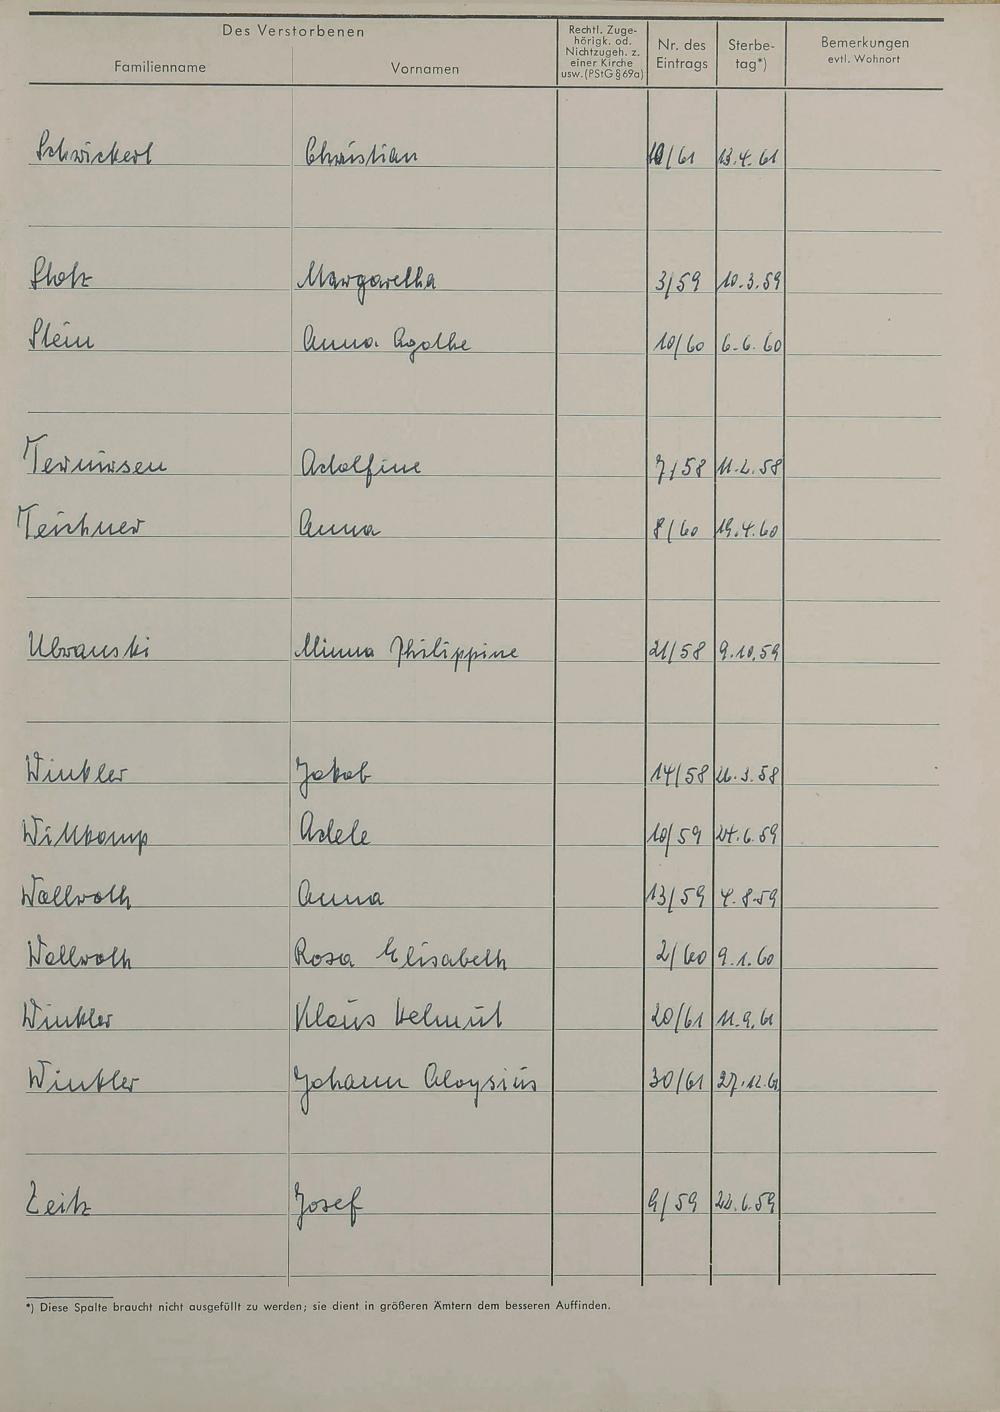 Des Verstorbenen
Familienname Vornamen
Rechtl. Zuge-
hörigk. od.
Nichtzugeh. z.
einer Kirche
usw. (PStG § 69a)
Nr. des
Eintrags
Sterbe-
tag*)
Bemerkungen
evtl. Wohnort
Schwickert Christian 10/61 13.4.61
Stolz Margaretha 3/59 10.3.59
Stein Anna Agathe 10/60 6.6.60
Ternirsen Adolfine 7/58 11.2.58
Teichner Anna 8/60 19.4.60
Minna Philippine 21/58 9.10.59
Winkler Jakob 14/58 26.3.58
Willkomp Adele 10/59 24.6.59
Wallroth Anna 13/59 4.8.59
Wallroth Rosa Elisabeth 2/60 9.1.60
Winkler Klaus Helmut 20/61 11.9.61
Winkler Johann Aloysius 30/61 27.12.61
Zeitz Josef 9/59 22.6.59
*) Diese Spalte braucht nicht ausgefüllt zu werden; sie dient in größeren Ämtern dem besseren Auffinden.